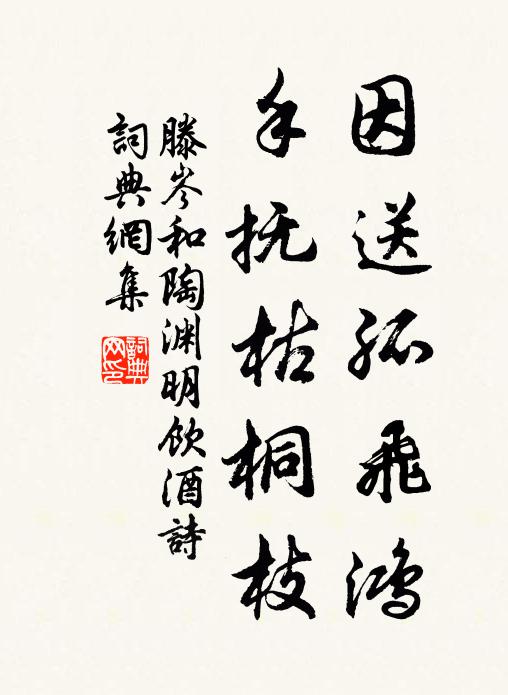 因送孤飛鴻
手抚枯桐枝
滕岑和陶渊明飲酒詩
詞典網集
詞典網印